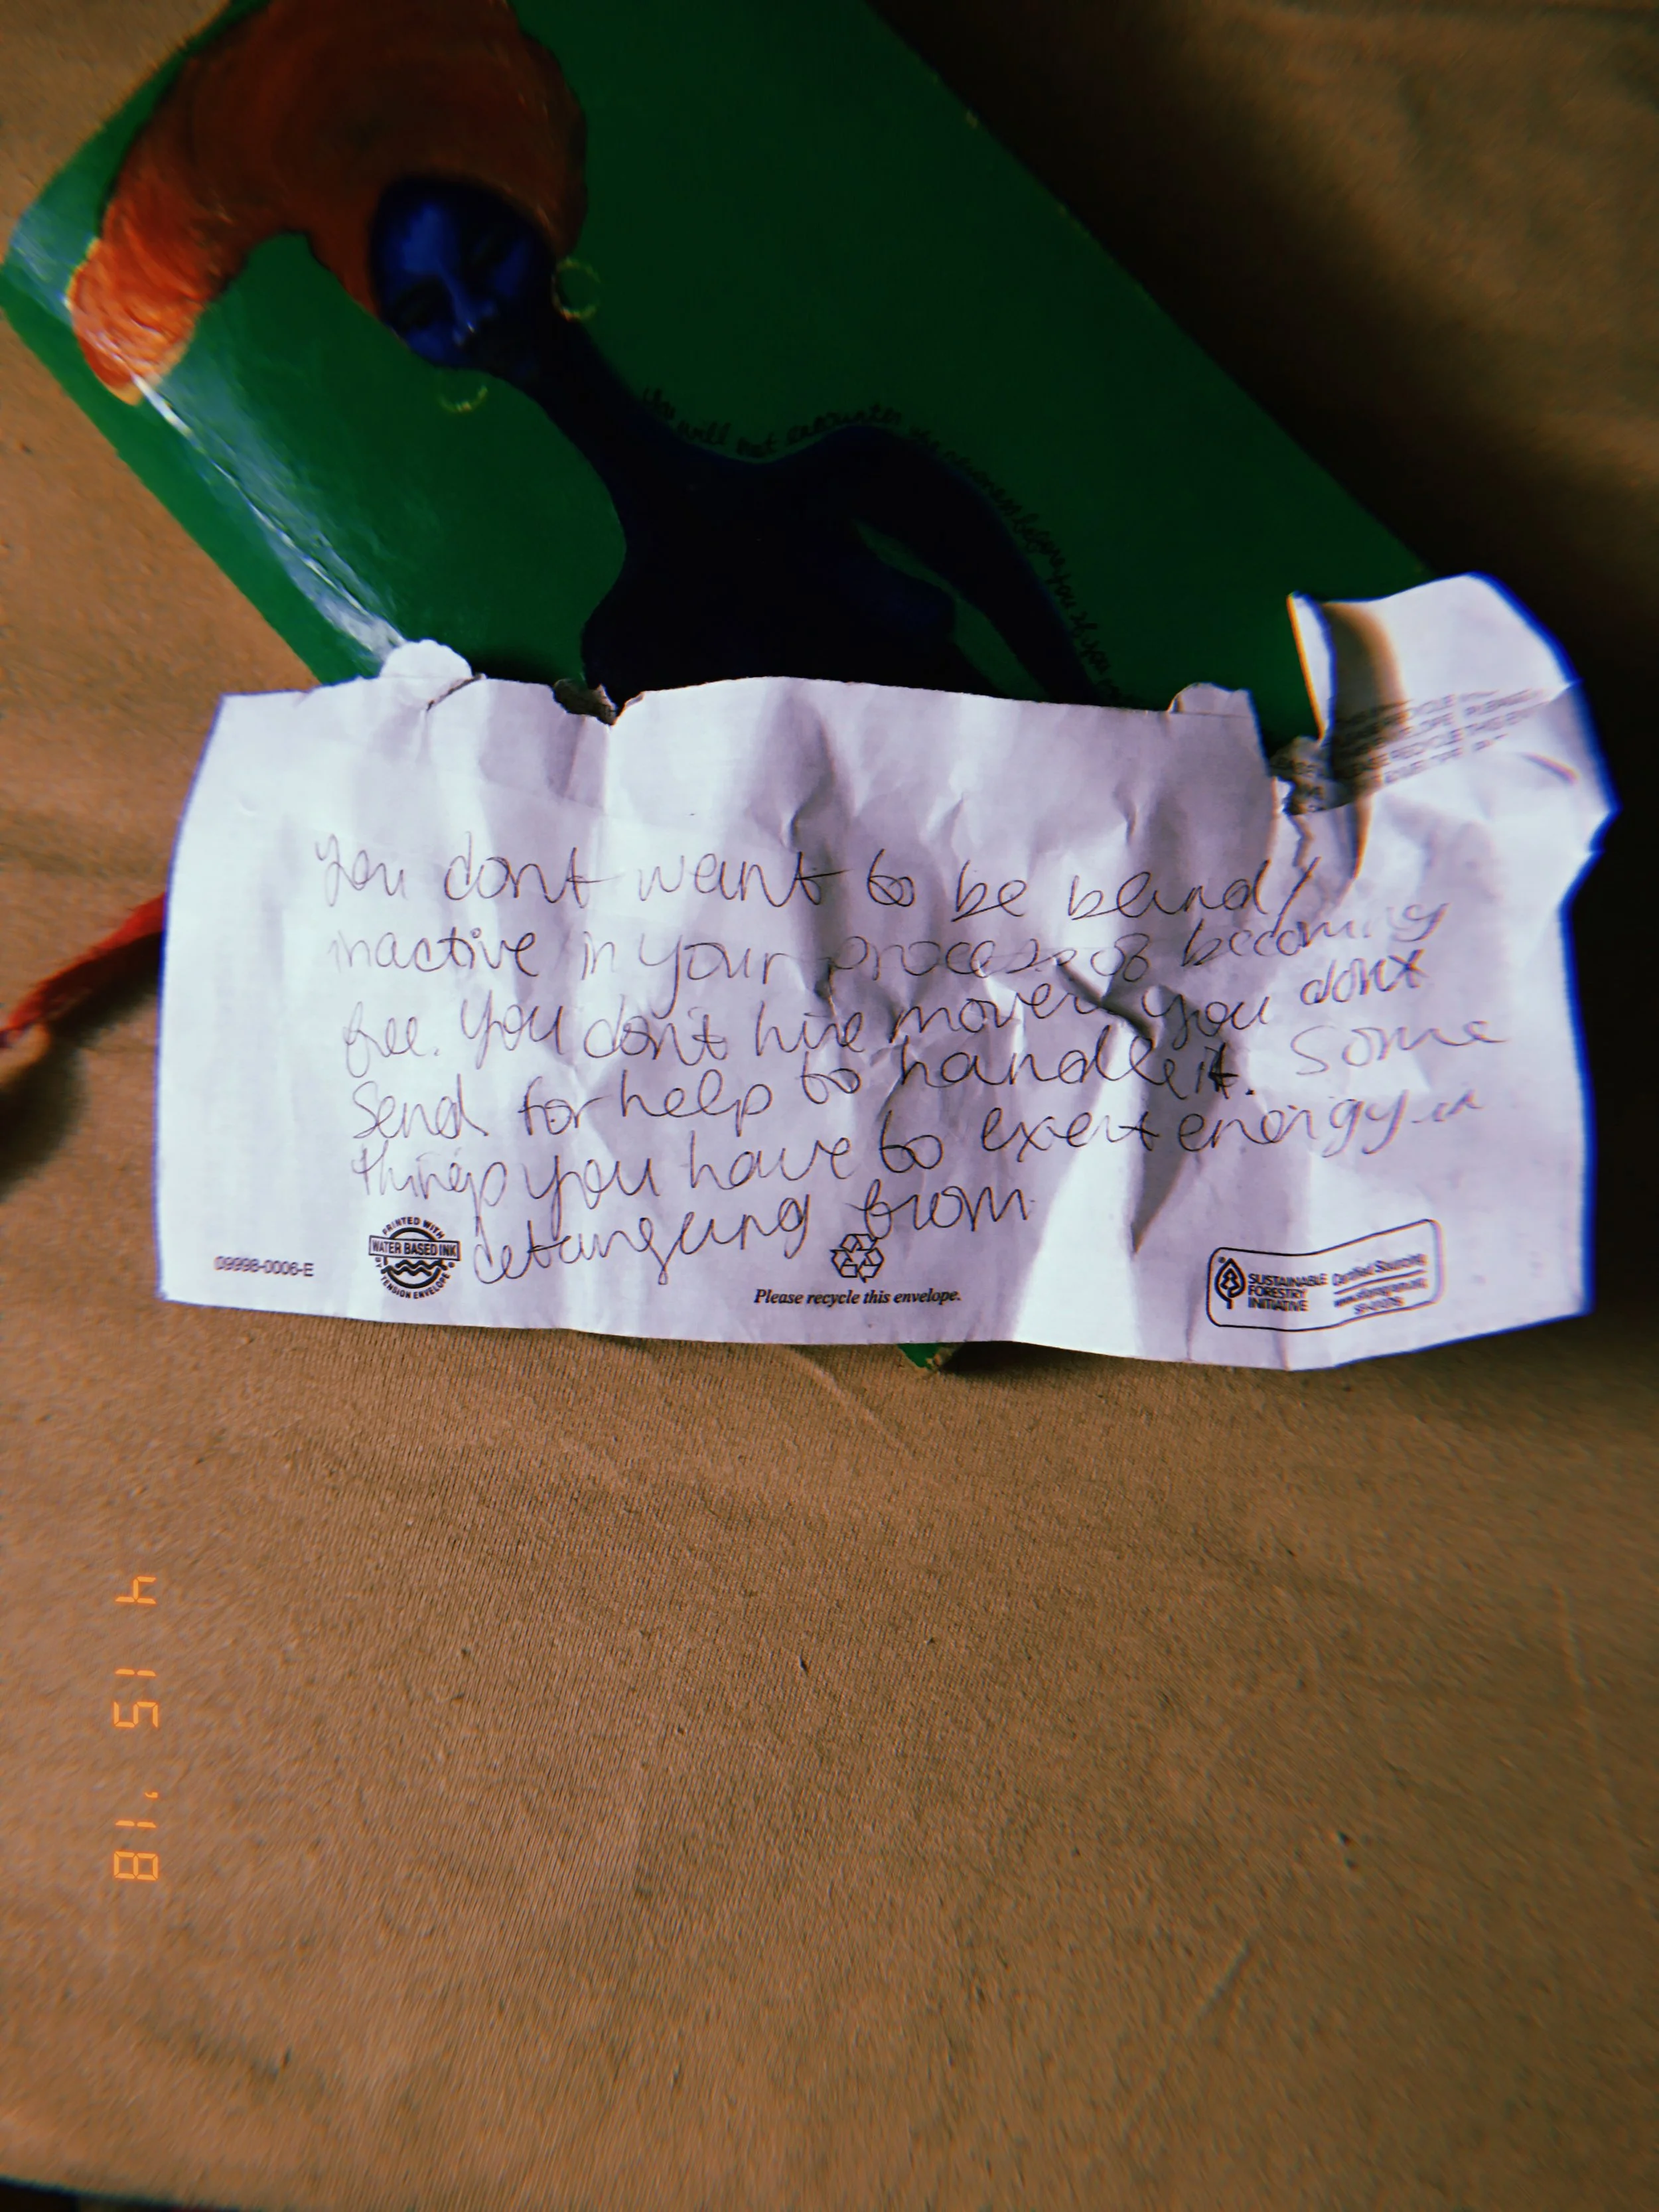 will not encounter
you if you
You dont want to be bland/
inactive in your process of becoming
free. You don't hire movers you dont
Send for help to handle it. Some
things you have to exert energy in
detangling from
PRINTED WITH
WATER BASED INK
BY TENSION ENVELOPE
09998-0006-E
Please recycle this envelope.
SUSTAINABLE
FORESTRY
INITIATIVE
Certified Sourcing
4 15 '18